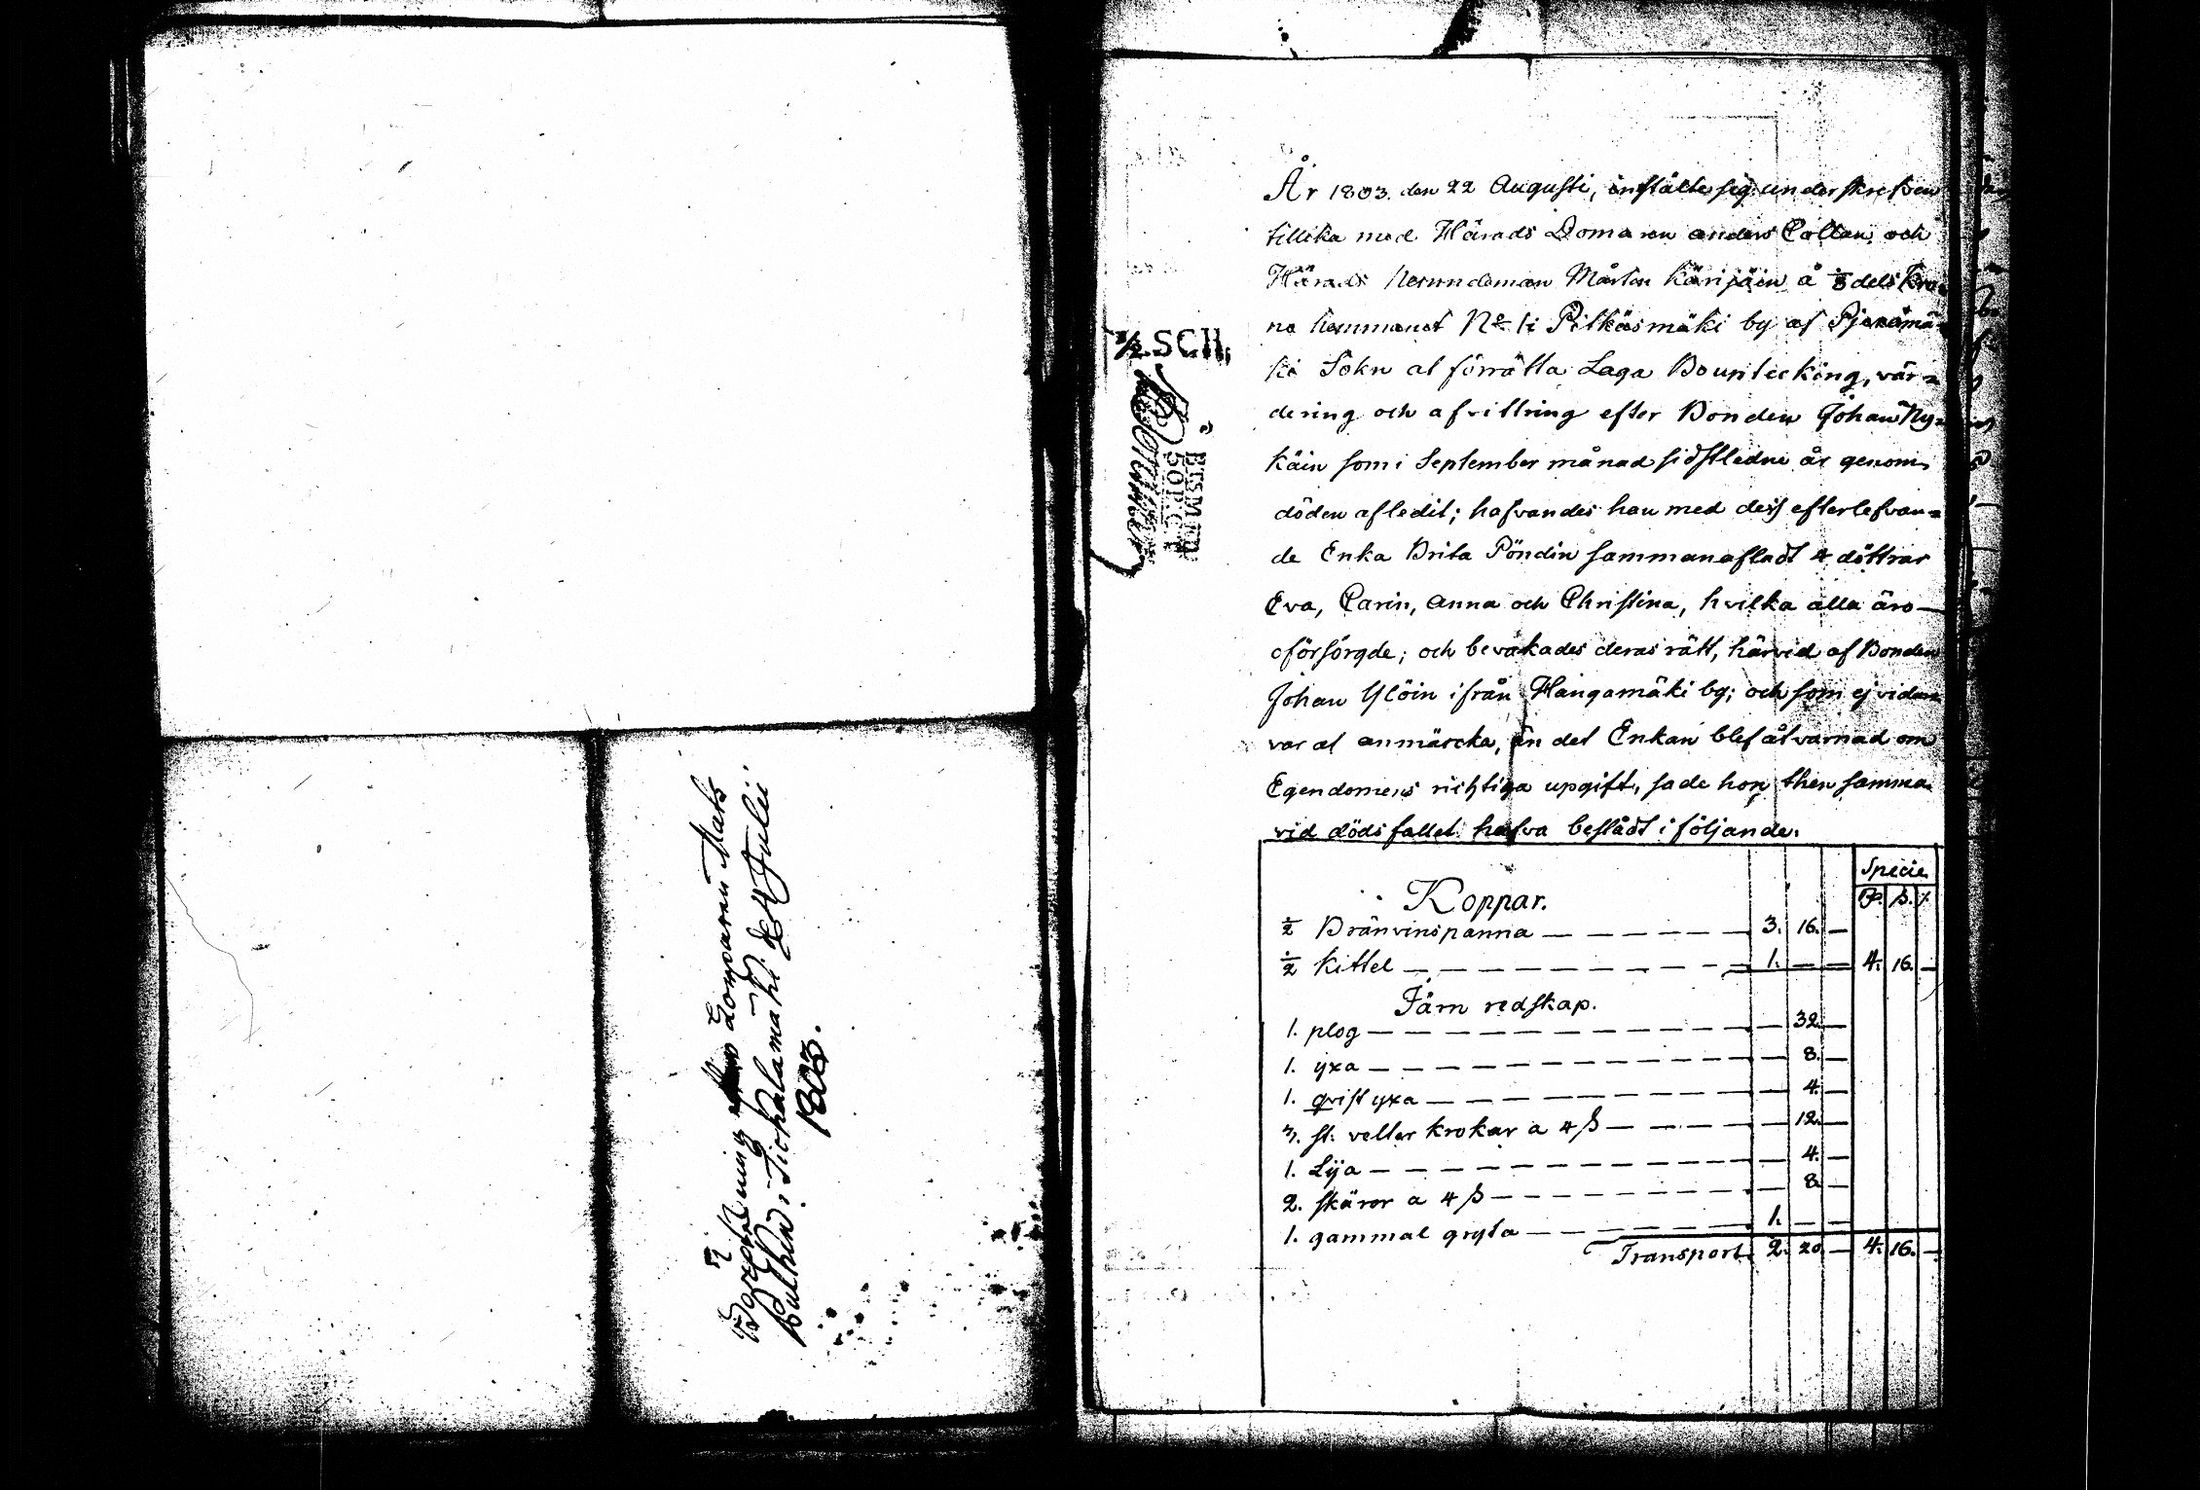 Bouptekning efter Lomparen Mats
Bulkin i Tiohalamäki d 4 Julii
1803.
½ SCH,
År 1803. den 22 Augusti, instälte sig underskrefven
tillika med Härads Domaren anders Poltan, och
Härads Nemndeman Mårten Kärijäin å ⅛ dels Kro-
no hemmanet No 1 i Pitkäsmäki by af Pjexämä-
ki Sokn at förrätta Laga Bouptekning, vär=
dering och afvittring efter Bonden Johan Ny-
käin som i September månad sidstledne år genom
döden afledit; hafvandes han med dess efterlefvan=
de Enka Brita Pöndin sammanafladt 4 döttrar
Eva, Carin, Anna och Christina, hvilka alla äro—
oförsörgde; och bevakades deras rätt, härvid af Bonden
Johan Ylöin ifrån Hangamäki by; och som ej vidare
var at anmärcka, än det Enkan blef åtvarnad om
Egendomens richtiga upgift, sade hon then samma
vid dödsfallet hafva bestådt i följande.
Specie
R. ß. r.
Koppar.
½ Bränvinspanna — — — — — 3. 16. —
½ Kittel — — — — — — — 1. — — 4. 16. —
Järn redskap.
1. plog — — — — — — — — 32. —
1. yxa — — — — — — — — 8. —
1. qvist yxa — — — — — — — 4. —
3. st. velter krokar a 4 ß — — — — 12. —
1. Lija — — — — — — — — 4. —
2. skäror a 4 ß — — — — — — 8. —
1. gammal gryta — — — — — 1. — —
Transport. 2. 20. — 4. 16. —